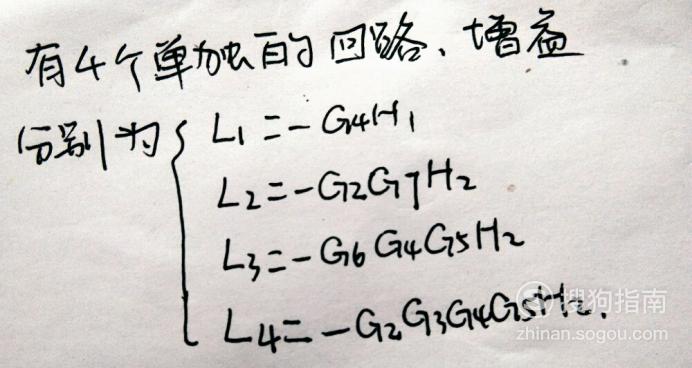 有4个单独的回路、增益
分别为{ L₁=-G₄H₁
L₂=-G₂G₇H₂
L₃=-G₆G₄G₅H₂
L₄=-G₂G₃G₄G₅H₂.
搜狗指南
zhinan.sogou.com